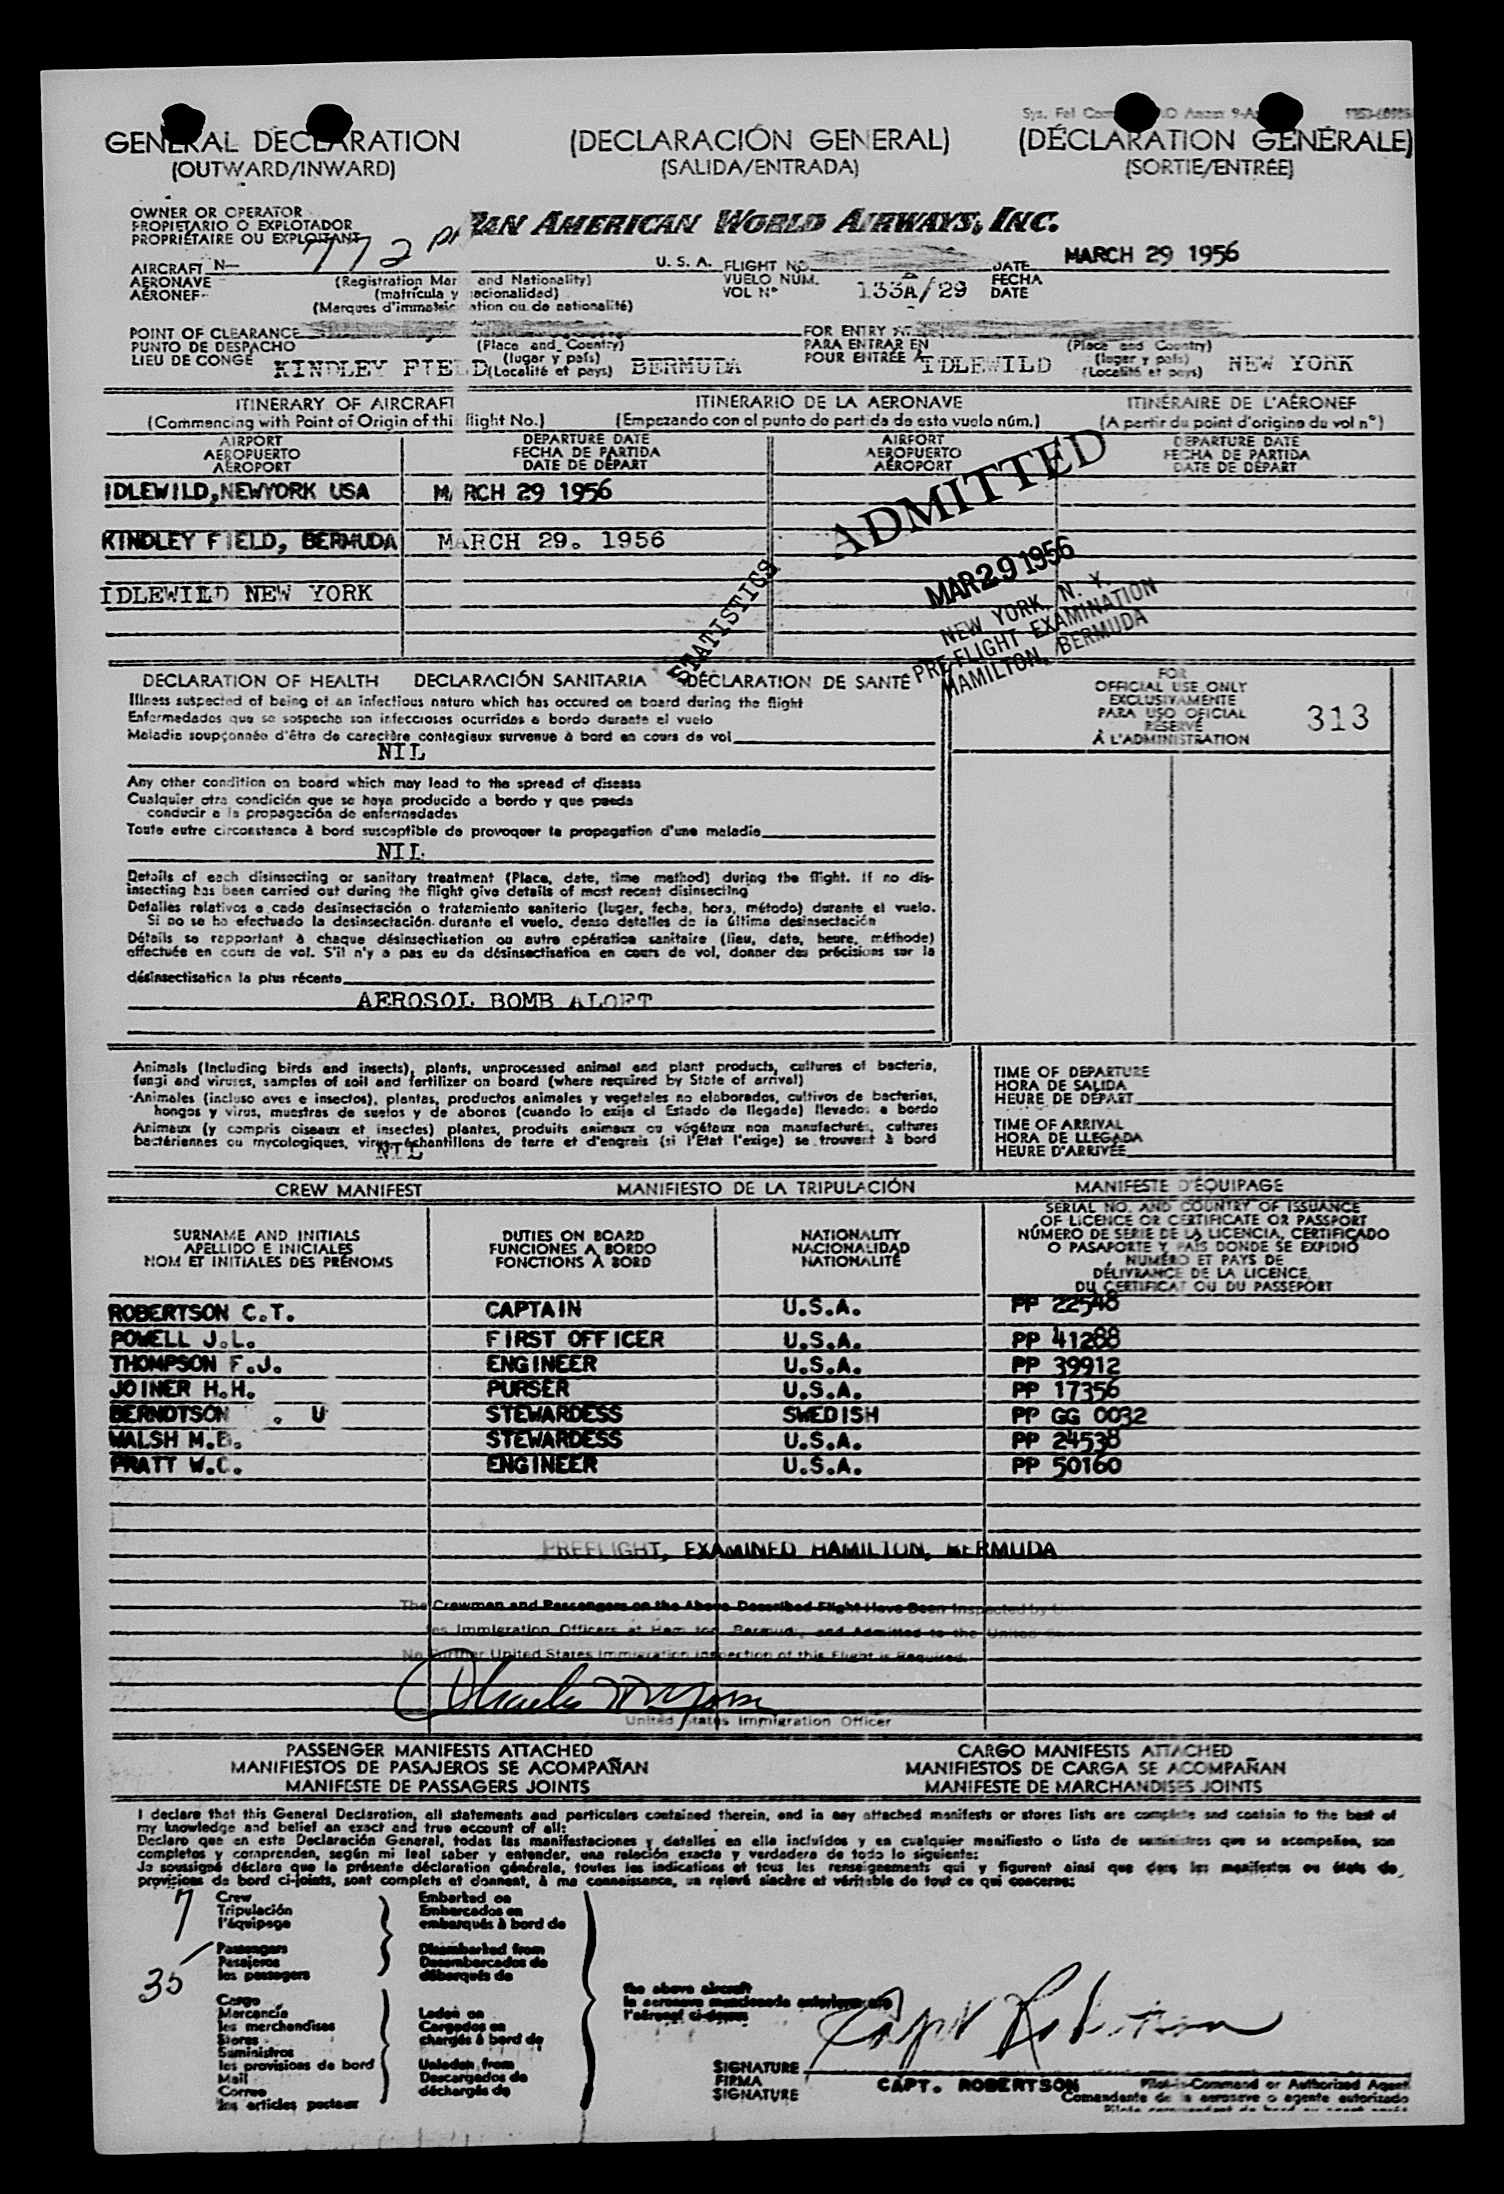 GENERAL DECLARATION (DECLARACIÓN GENERAL) (DÉCLARATION GÉNÉRALE)
(OUTWARD/INWARD) (SALIDA/ENTRADA) (SORTIE/ENTRÉE)
OWNER OR OPERATOR
PROPIETARIO O EXPLOTADOR
PROPRIÉTAIRE OU EXPLOITANT
PAN AMERICAN WORLD AIRWAYS, INC.
772
AIRCRAFT N—
AERONAVE
AÉRONEF
(Registration Mar and Nationality)
(matrícula y nacionalidad)
U. S. A. FLIGHT NO.
VUELO NÚM.
VOL Nº
133A/29
DATE
FECHA
DATE
MARCH 29 1956
POINT OF CLEARANCE
PUNTO DE DESPACHO
LIEU DE CONGÉ
KINDLEY FIELD
(Place and Country)
(lugar y país)
(Localité et pays)
BERMUDA
FOR ENTRY AT
PARA ENTRAR EN
POUR ENTRÉE À
IDLEWILD
(Place and Country)
(lugar y país)
(Localité et pays)
NEW YORK
ITINERARY OF AIRCRAFT ITINERARIO DE LA AERONAVE ITINÉRAIRE DE L'AÉRONEF
(Commencing with Point of Origin of this flight No.) (Empezando con el punto de partida de este vuelo núm.) (A partir du point d'origine du vol nº)
AIRPORT
AEROPUERTO
AÉROPORT
DEPARTURE DATE
FECHA DE PARTIDA
DATE DE DÉPART
AIRPORT
AEROPUERTO
AÉROPORT
DEPARTURE DATE
FECHA DE PARTIDA
DATE DE DÉPART
IDLEWILD,NEWYORK USA MARCH 29 1956
KINDLEY FIELD, BERMUDA MARCH 29. 1956
IDLEWILD NEW YORK
STATISTICS
ADMITTED
MAR 29 1956
NEW YORK, N. Y.
PRE-FLIGHT EXAMINATION
HAMILTON, BERMUDA
DECLARATION OF HEALTH DECLARACIÓN SANITARIA DÉCLARATION DE SANTÉ
Illness suspected of being of an infectious nature which has occured on board during the flight
Enfermedades que se sospecha son infecciosas ocurridas a bordo durante el vuelo
Maladie soupçonnée d'être de caractère contagieux survenue à bord en cours de vol
NIL
Any other condition on board which may lead to the spread of disease
Cualquier otra condición que se haya producido a bordo y que pueda
conducir a la propagación de enfermedades
Toute autre circonstance à bord susceptible de provoquer la propagation d'une maladie
NIL
Details of each disinsecting or sanitary treatment (Place, date, time method) during the flight. If no dis-
insecting has been carried out during the flight give details of most recent disinsecting
Detalles relativos a cada desinsectación o tratamiento sanitario (lugar, fecha, hora, método) durante el vuelo.
Si no se ha efectuado la desinsectación durante el vuelo, dense detalles de la última desinsectación
Détails se rapportant à chaque désinsectisation ou autre opération sanitaire (lieu, date, heure, méthode)
effectuée en cours de vol. S'il n'y a pas eu de désinsectisation en cours de vol, donner des précisions sur la
désinsectisation la plus récente
AEROSOL BOMB ALOFT
FOR
OFFICIAL USE ONLY
EXCLUSIVAMENTE
PARA USO OFICIAL
RÉSERVÉ
À L'ADMINISTRATION
313
Animals (including birds and insects), plants, unprocessed animal and plant products, cultures of bacteria,
fungi and viruses, samples of soil and fertilizer on board (where required by State of arrival)
Animales (incluso aves e insectos), plantas, productos animales y vegetales no elaborados, cultivos de bacterias,
hongos y virus, muestras de suelos y de abonos (cuando lo exija el Estado de llegada) llevados a bordo
Animaux (y compris oiseaux et insectes) plantes, produits animaux ou végétaux non manufacturés, cultures
bactériennes ou mycologiques, virus, échantillons de terre et d'engrais (si l'Etat l'exige) se trouvant à bord
NIL
TIME OF DEPARTURE
HORA DE SALIDA
HEURE DE DÉPART
TIME OF ARRIVAL
HORA DE LLEGADA
HEURE D'ARRIVÉE
CREW MANIFEST MANIFIESTO DE LA TRIPULACIÓN MANIFESTE D'ÉQUIPAGE
SURNAME AND INITIALS
APELLIDO E INICIALES
NOM ET INITIALES DES PRÉNOMS
DUTIES ON BOARD
FUNCIONES A BORDO
FONCTIONS À BORD
NATIONALITY
NACIONALIDAD
NATIONALITÉ
SERIAL NO. AND COUNTRY OF ISSUANCE
OF LICENCE OR CERTIFICATE OR PASSPORT
NÚMERO DE SERIE DE LA LICENCIA, CERTIFICADO
O PASAPORTE Y PAÍS DONDE SE EXPIDIÓ
NUMÉRO ET PAYS DE
DÉLIVRANCE DE LA LICENCE,
DU CERTIFICAT OU DU PASSEPORT
ROBERTSON C.T. CAPTAIN U.S.A. PP 22548
POWELL J.L. FIRST OFFICER U.S.A. PP 41288
THOMPSON F.J. ENGINEER U.S.A. PP 39912
JOINER H.H. PURSER U.S.A. PP 17356
BERNDTSON . U STEWARDESS SWEDISH PP GG 0032
WALSH M.B. STEWARDESS U.S.A. PP 24538
PRATT W.C. ENGINEER U.S.A. PP 50160
PREFLIGHT, EXAMINED HAMILTON, BERMUDA
The Crewmen and Passengers on the Above Described Flight Have Been Inspected by
Immigration Officers at Bermuda, and Admitted to the United
No Further United States Immigration Inspection of this Flight is Required.
United States Immigration Officer
PASSENGER MANIFESTS ATTACHED
MANIFIESTOS DE PASAJEROS SE ACOMPAÑAN
MANIFESTE DE PASSAGERS JOINTS
CARGO MANIFESTS ATTACHED
MANIFIESTOS DE CARGA SE ACOMPAÑAN
MANIFESTE DE MARCHANDISES JOINTS
I declare that this General Declaration, all statements and particulars contained therein, and in any attached manifests or stores lists are complete and contain to the best of
my knowledge and belief an exact and true account of all:
Declaro que en esta Declaración General, todas las manifestaciones y detalles en ella incluídos y en cualquier manifiesto o lista de suministros que se acompañen, son
completos y comprenden, según mi leal saber y entender, una relación exacta y verdadera de todo lo siguiente:
Je soussigné déclare que la présente déclaration générale, toutes les indications et tous les renseignements qui y figurent ainsi que dans les manifestes ou états de
provisions de bord ci-joints, sont complets et donnent, à ma connaissance, un relevé sincère et véritable de tout ce qui concerne:
7
Crew
Tripulación
l'équipage
Embarked on
Embarcados en
embarqués à bord de
35
Passengers
Pasajeros
les passagers
Disembarked from
Desembarcados de
débarqués de
Cargo
Mercancía
les merchandises
Stores
Suministros
les provisions de bord
Mail
Correo
les articles postaux
Laden on
Cargados en
chargés à bord de
Unladen from
Descargados de
déchargés de
the above aircraft
la aeronave mencionada anteriormente
l'aéronef ci-dessus
Capt Robertson
SIGNATURE
FIRMA
SIGNATURE
CAPT. ROBERTSON
Pilot-in-Command or Authorized Agent
Comandante de la aeronave o agente autorizado